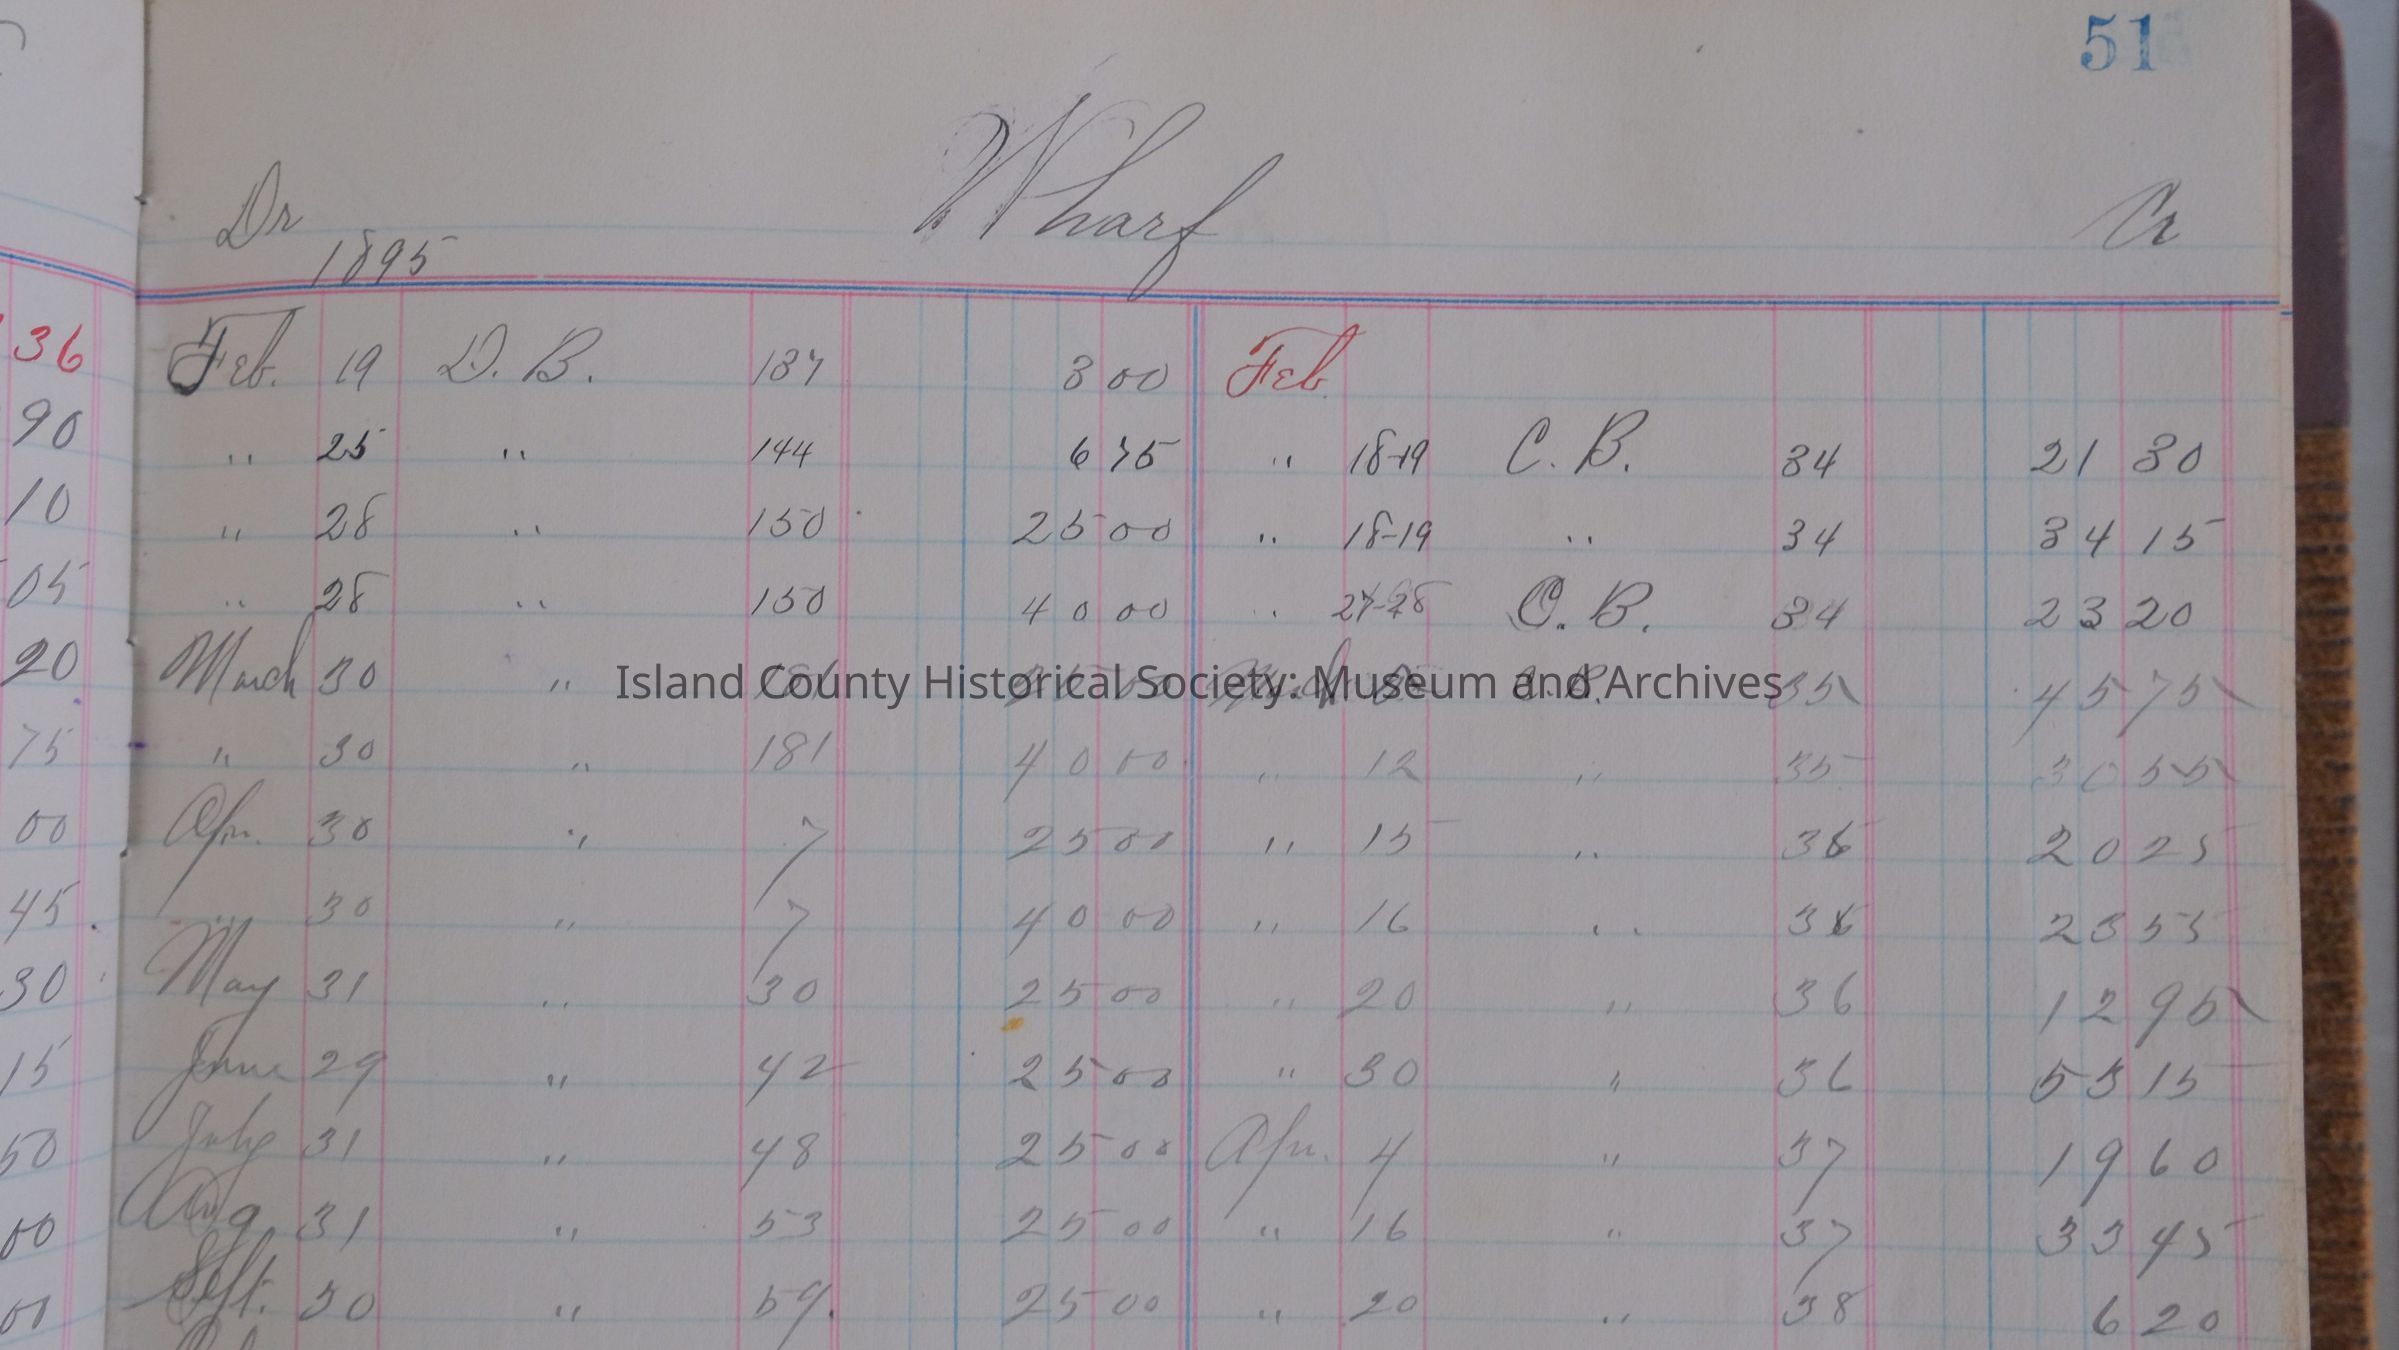 51
Wharf
Dr Cr
1895
36 Feb. 19 D. B. 137 3 00 Feb.
90 " 25 " 144 6 75 " 18-19 C. B. 34 21 30
10 " 28 " 150 25 00 " 18-19 " 34 34 15
05 " 28 " 150 40 00 " 27-28 C. B. 34 23 20
20 March 30 " 35 45 75
Island County Historical Society: Museum and Archives
75 " 30 " 181 40 00 " 12 " 35 30 55
00 Apr. 30 " 7 25 00 " 15 " 36 20 25
45 " 30 " 7 40 00 " 16 " 36 23 55
30 May 31 " 30 25 00 " 20 " 36 12 95
15 June 29 " 42 25 00 " 30 " 36 53 15
50 July 31 " 48 25 00 Apr. 4 " 37 19 60
00 Aug. 31 " 53 25 00 " 16 " 37 33 45
00 Sept. 30 " 59. 25 00 " 20 " 38 6 20